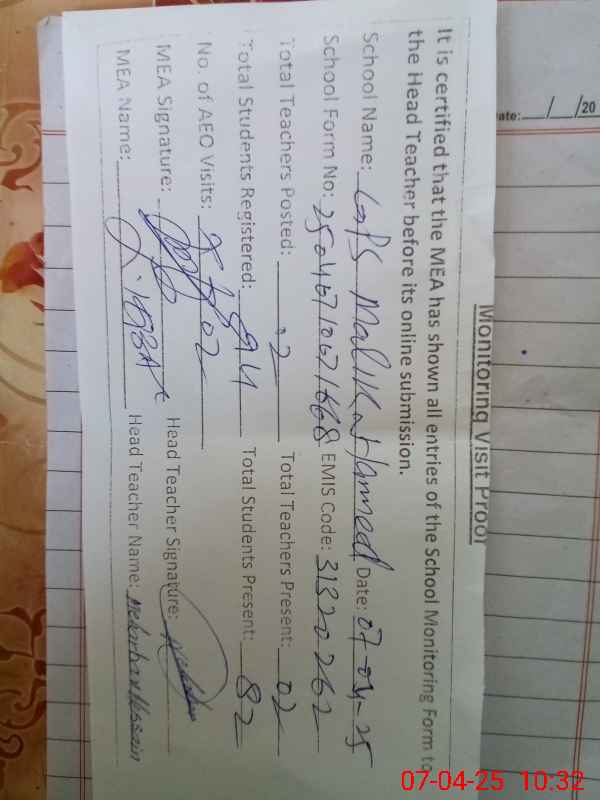 Monitoring Visit Proof
It is certified that the MEA has shown all entries of the School Monitoring Form to
the Head Teacher before its online submission.
School Name: GPS Malik Hammed Date: 07-04-25
School Form No: EMIS Code: 31322262
Total Teachers Posted: 02 Total Teachers Present: 02
Total Students Registered: 94 Total Students Present: 82
No. of AEO Visits: 02
MEA Signature: Head Teacher Signature:
MEA Name: Head Teacher Name:
ate: / /20
07-04-25 10:32